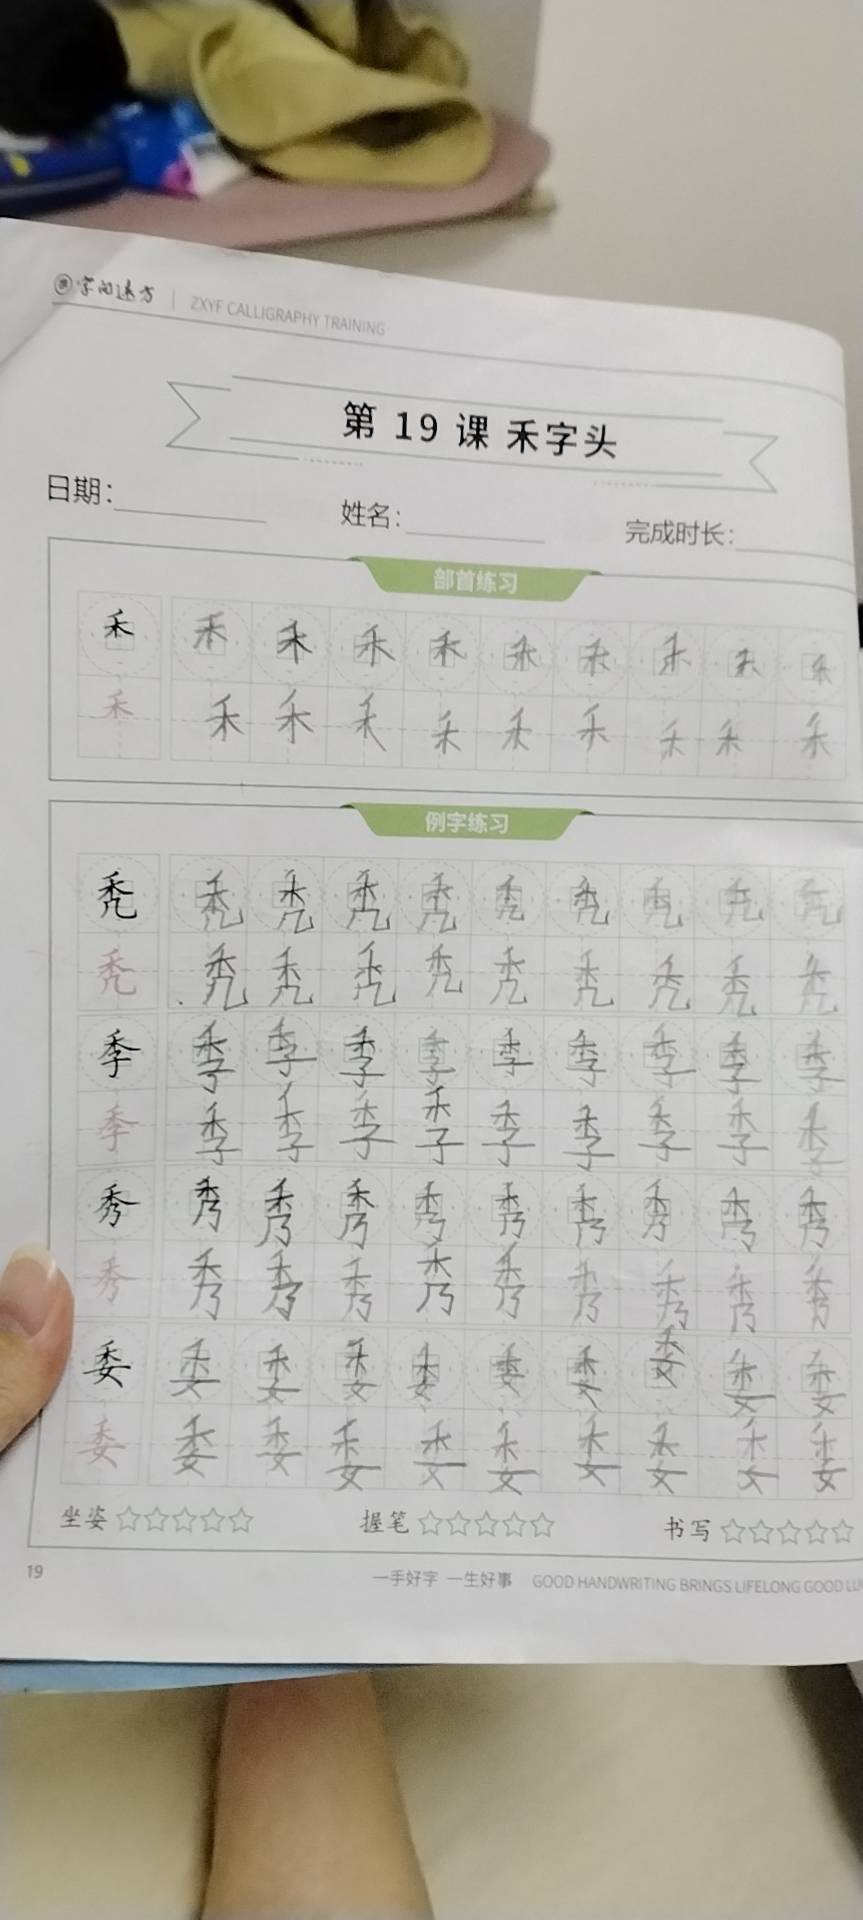 字间远方 ZXYF CALLIGRAPHY TRAINING
第 19 课 禾字头
日期： 姓名： 完成时长：
部首练习
禾 禾 禾 禾 禾 禾 禾 禾 禾 禾
禾 禾 禾 禾 禾 禾 禾 禾 禾 禾
例字练习
秃 秃 秃 秃 秃 秃 秃 秃 秃 秃
秃 秃 秃 秃 秃 秃 秃 秃 秃 秃
季 季 季 季 季 季 季 季 季 季
季 季 季 季 季 季 季 季 季 季
秀 秀 秀 秀 秀 秀 秀 秀 秀 秀
秀 秀 秀 秀 秀 秀 秀 秀 秀 秀
委 委 委 委 委 委 委 委 委 委
委 委 委 委 委 委 委 委 委 委
坐姿☆☆☆☆☆ 握笔☆☆☆☆☆ 书写☆☆☆☆☆
19 一手好字 一生好事 GOOD HANDWRITING BRINGS LIFELONG GOOD